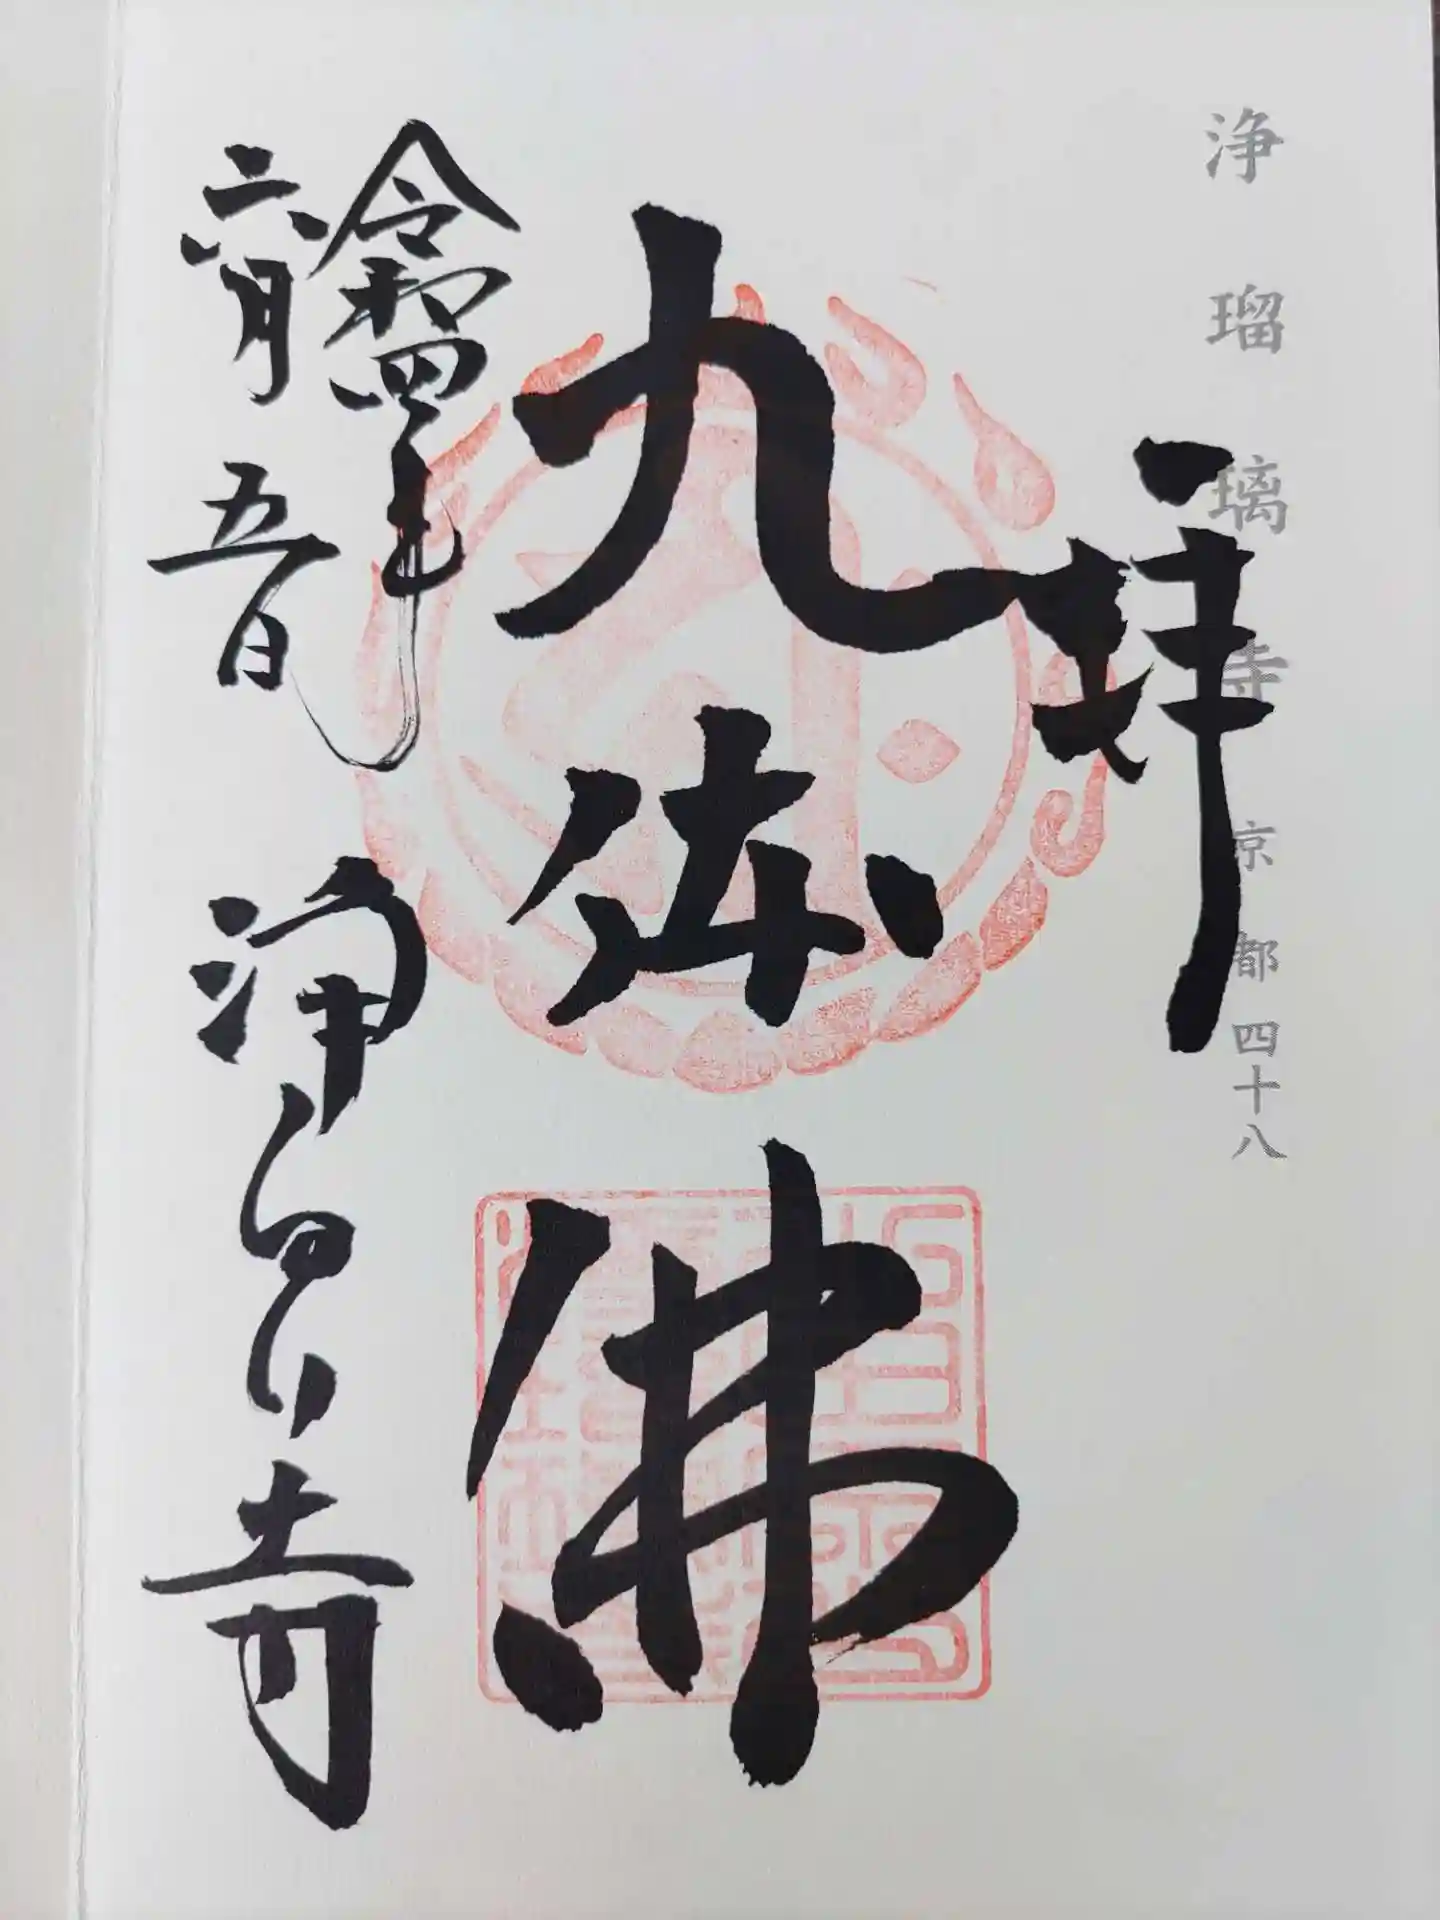 浄瑠璃寺 京都四十八
奉拝
九体佛
令和四年
六月五日
浄るり寺